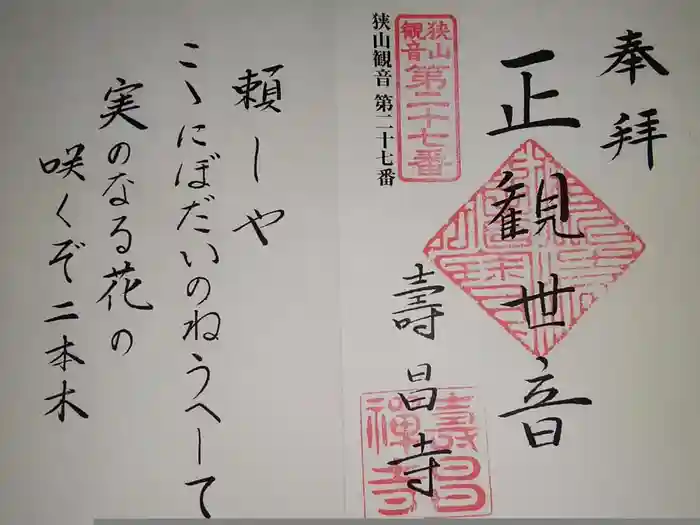 奉拝
正観世音
壽昌寺
狭山観音
第二十七番
狭山観音 第二十七番
壽昌
禅寺
頼しや
こゝにぼだいのねうへして
実のなる花の
咲くぞ二本木